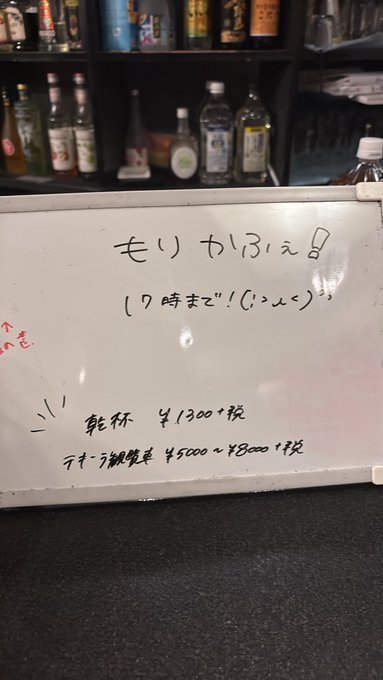 もりかふぇ!
17時まで!(;>_<)''
乾杯 ¥1300+税
テキーラ観覧車 ¥5000~¥8000+税